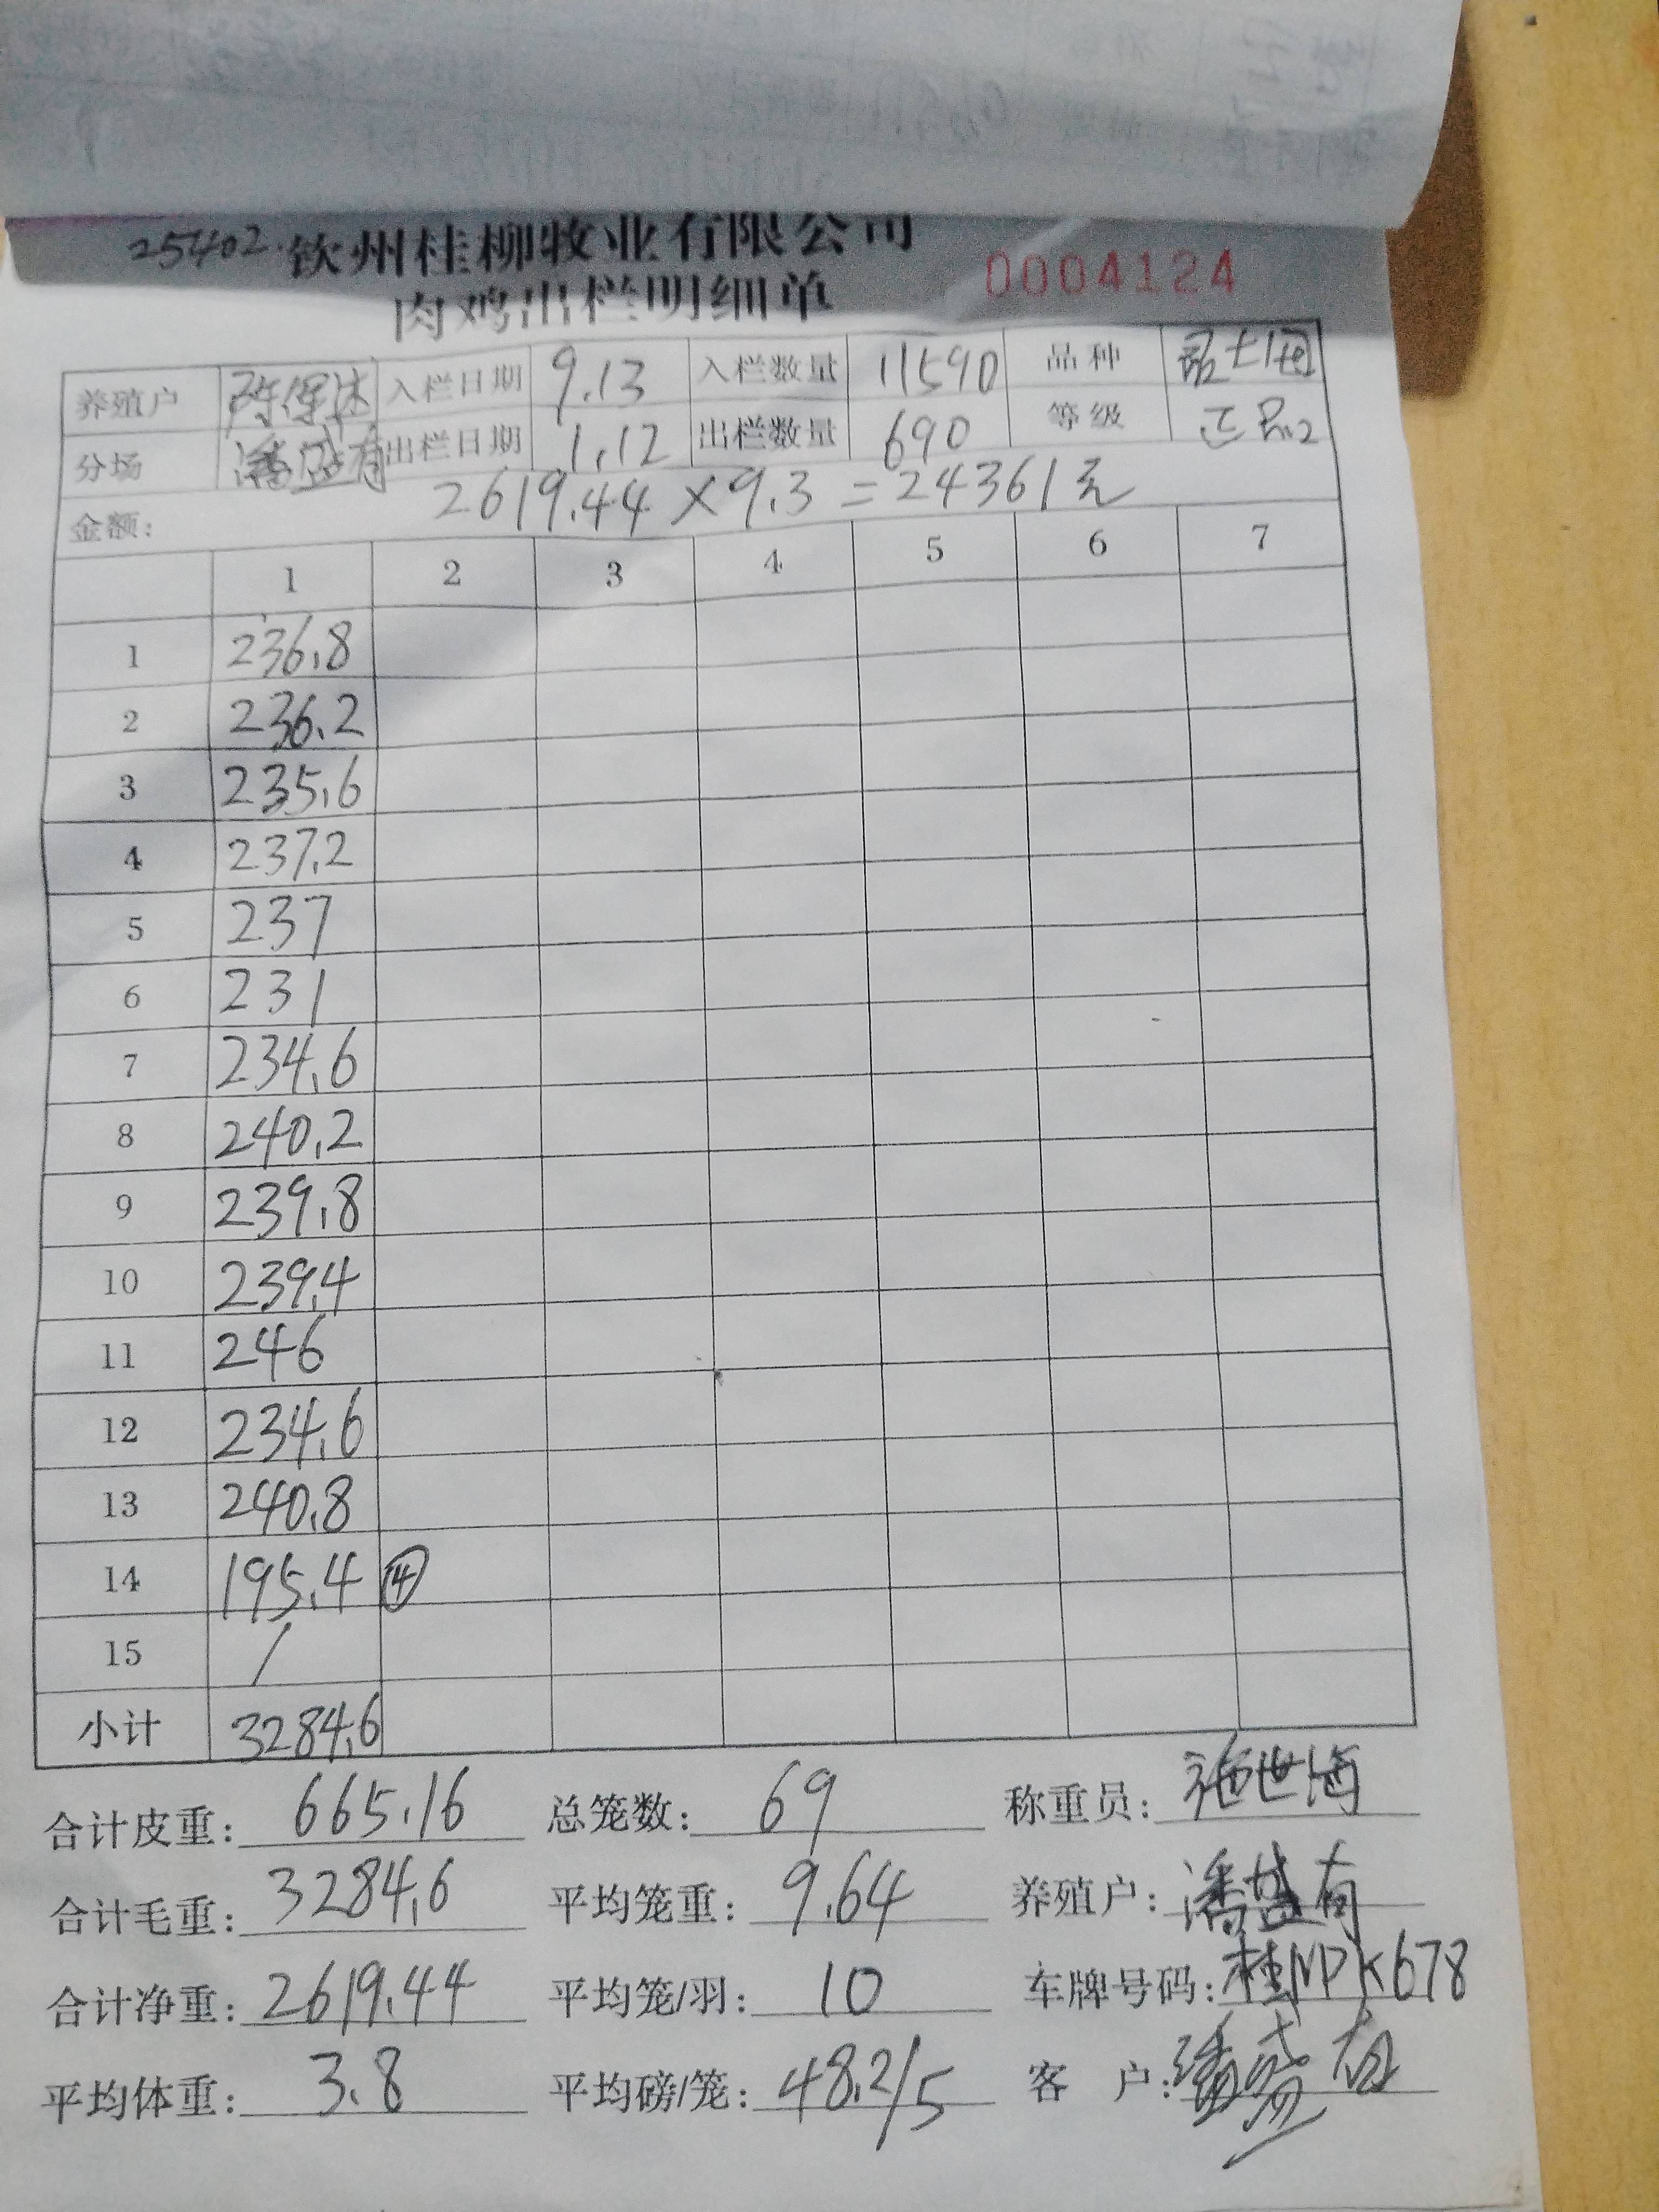 25402. 钦州桂柳牧业有限公司
肉鸡出栏明细单 0004124
养殖户 入栏日期 9.13 入栏数量 11590 品种 土
分场 潘盛有 出栏日期 1.12 出栏数量 690 等级 正品2
金额: 2619.44×9.3=24361元
1 2 3 4 5 6 7
1 236.8
2 236.2
3 235.6
4 237.2
5 237
6 231
7 234.6
8 240.2
9 239.8
10 239.4
11 246
12 234.6
13 240.8
14 195.4 ④
15 /
小计 3284.6
合计皮重: 665.16 总笼数: 69 称重员: 施世海
合计毛重: 3284.6 平均笼重: 9.64 养殖户: 潘盛有
合计净重: 2619.44 平均笼/羽: 10 车牌号码: 桂NPK678
平均体重: 3.8 平均磅/笼: 48.2/5 客户: 潘盛有